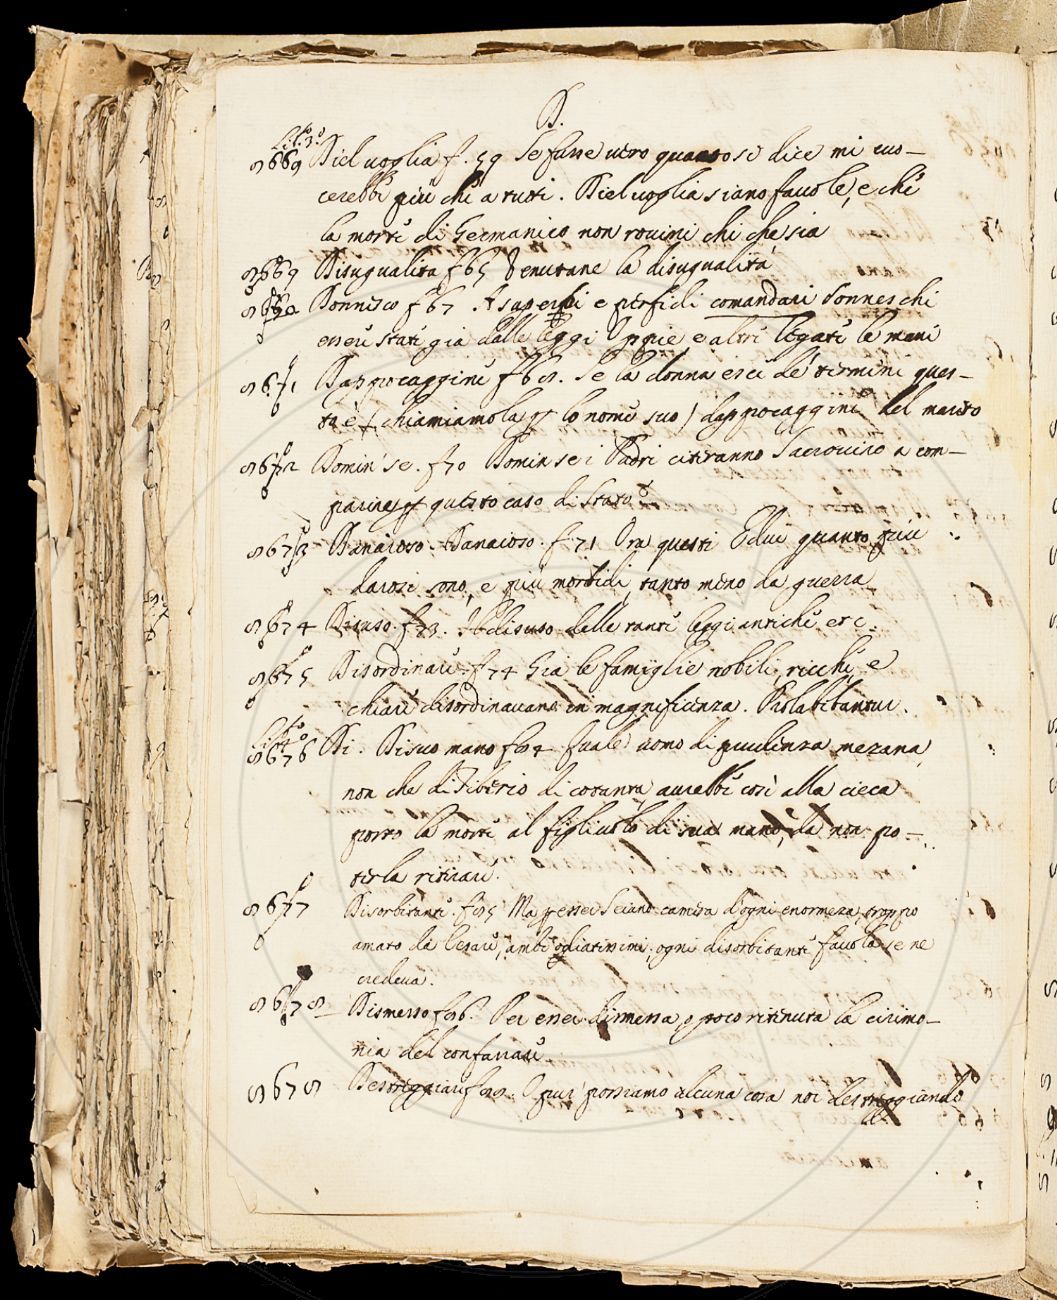 D.
Lib. 3.º
9669 Diel uoglia f. 59 Se fusse uero quanto se dice mi cuo-
cerebbe piu chè a tutti. Diel uoglia siano fauole, e chè
la morte di Germanico non rouini chi che sia
9669 Disugualita f 65 Venutane la disugualità
9670 Donnesco f 67 A superbi e perfidi comandari Donneschi
esseri stati gia dalle leggi Oppie e altri legati le mani
9671 Dappocaggine f 68. Se la donna esce de termini ques-
ta è (chiamiamola p lo nome suo) dappocaggine del marito
9672 Domin' se. f 70 Domin se i Padri citeranno Sacrouiro a com-
parire p questo caso di stato?
9673 Danaioso. Danaioso. f 71 Ora questi Edui quanto piu
daiosi sono, e piu morbidi, tanto meno da guerra
9674 Disuso. f 73. Il disuso delle tante leggi antiche etc:
9675 Disordinare. f 74 Gia le famiglie nobili, ricche, e
chiare disordinauano in magnificenza. Prolabebantur.
Lib. 4º
9676 Di. Di suo mano f 84 quale uomo di prudenza mezana,
non che di Tiberio di cotanta aurebbe così alla cieca
porto la morte al figliuolo di sua mano, da non po-
terla ritirare.
9677 Disorbitante. f 85 Ma p esser Seiano camera d'ogni enormeza, troppo
amato da Cesare, ambi odiatissimi, ogni disorbitante fauola se ne
credeua.
9678 Dismesso f 86. Per esser dismessa, o poco ritenuta la cirimo-
nia del confarrare
9678 Destreggiare f 88. O pure possiamo alcuna cosa noi destreggiando